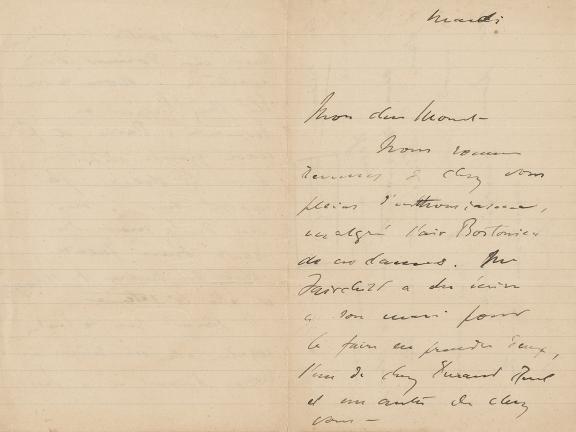 Mardi
Mon cher Monet –
Nous sommes
revenus de chez vous
pleins d'enthousiasme,
malgré l'air Bostonien
de ces dames. Me
Fairchild a du écrire
a son mari pour
le faire en prendre deux,
l'un de chez Durand Ruel
et un autre de chez
vous –